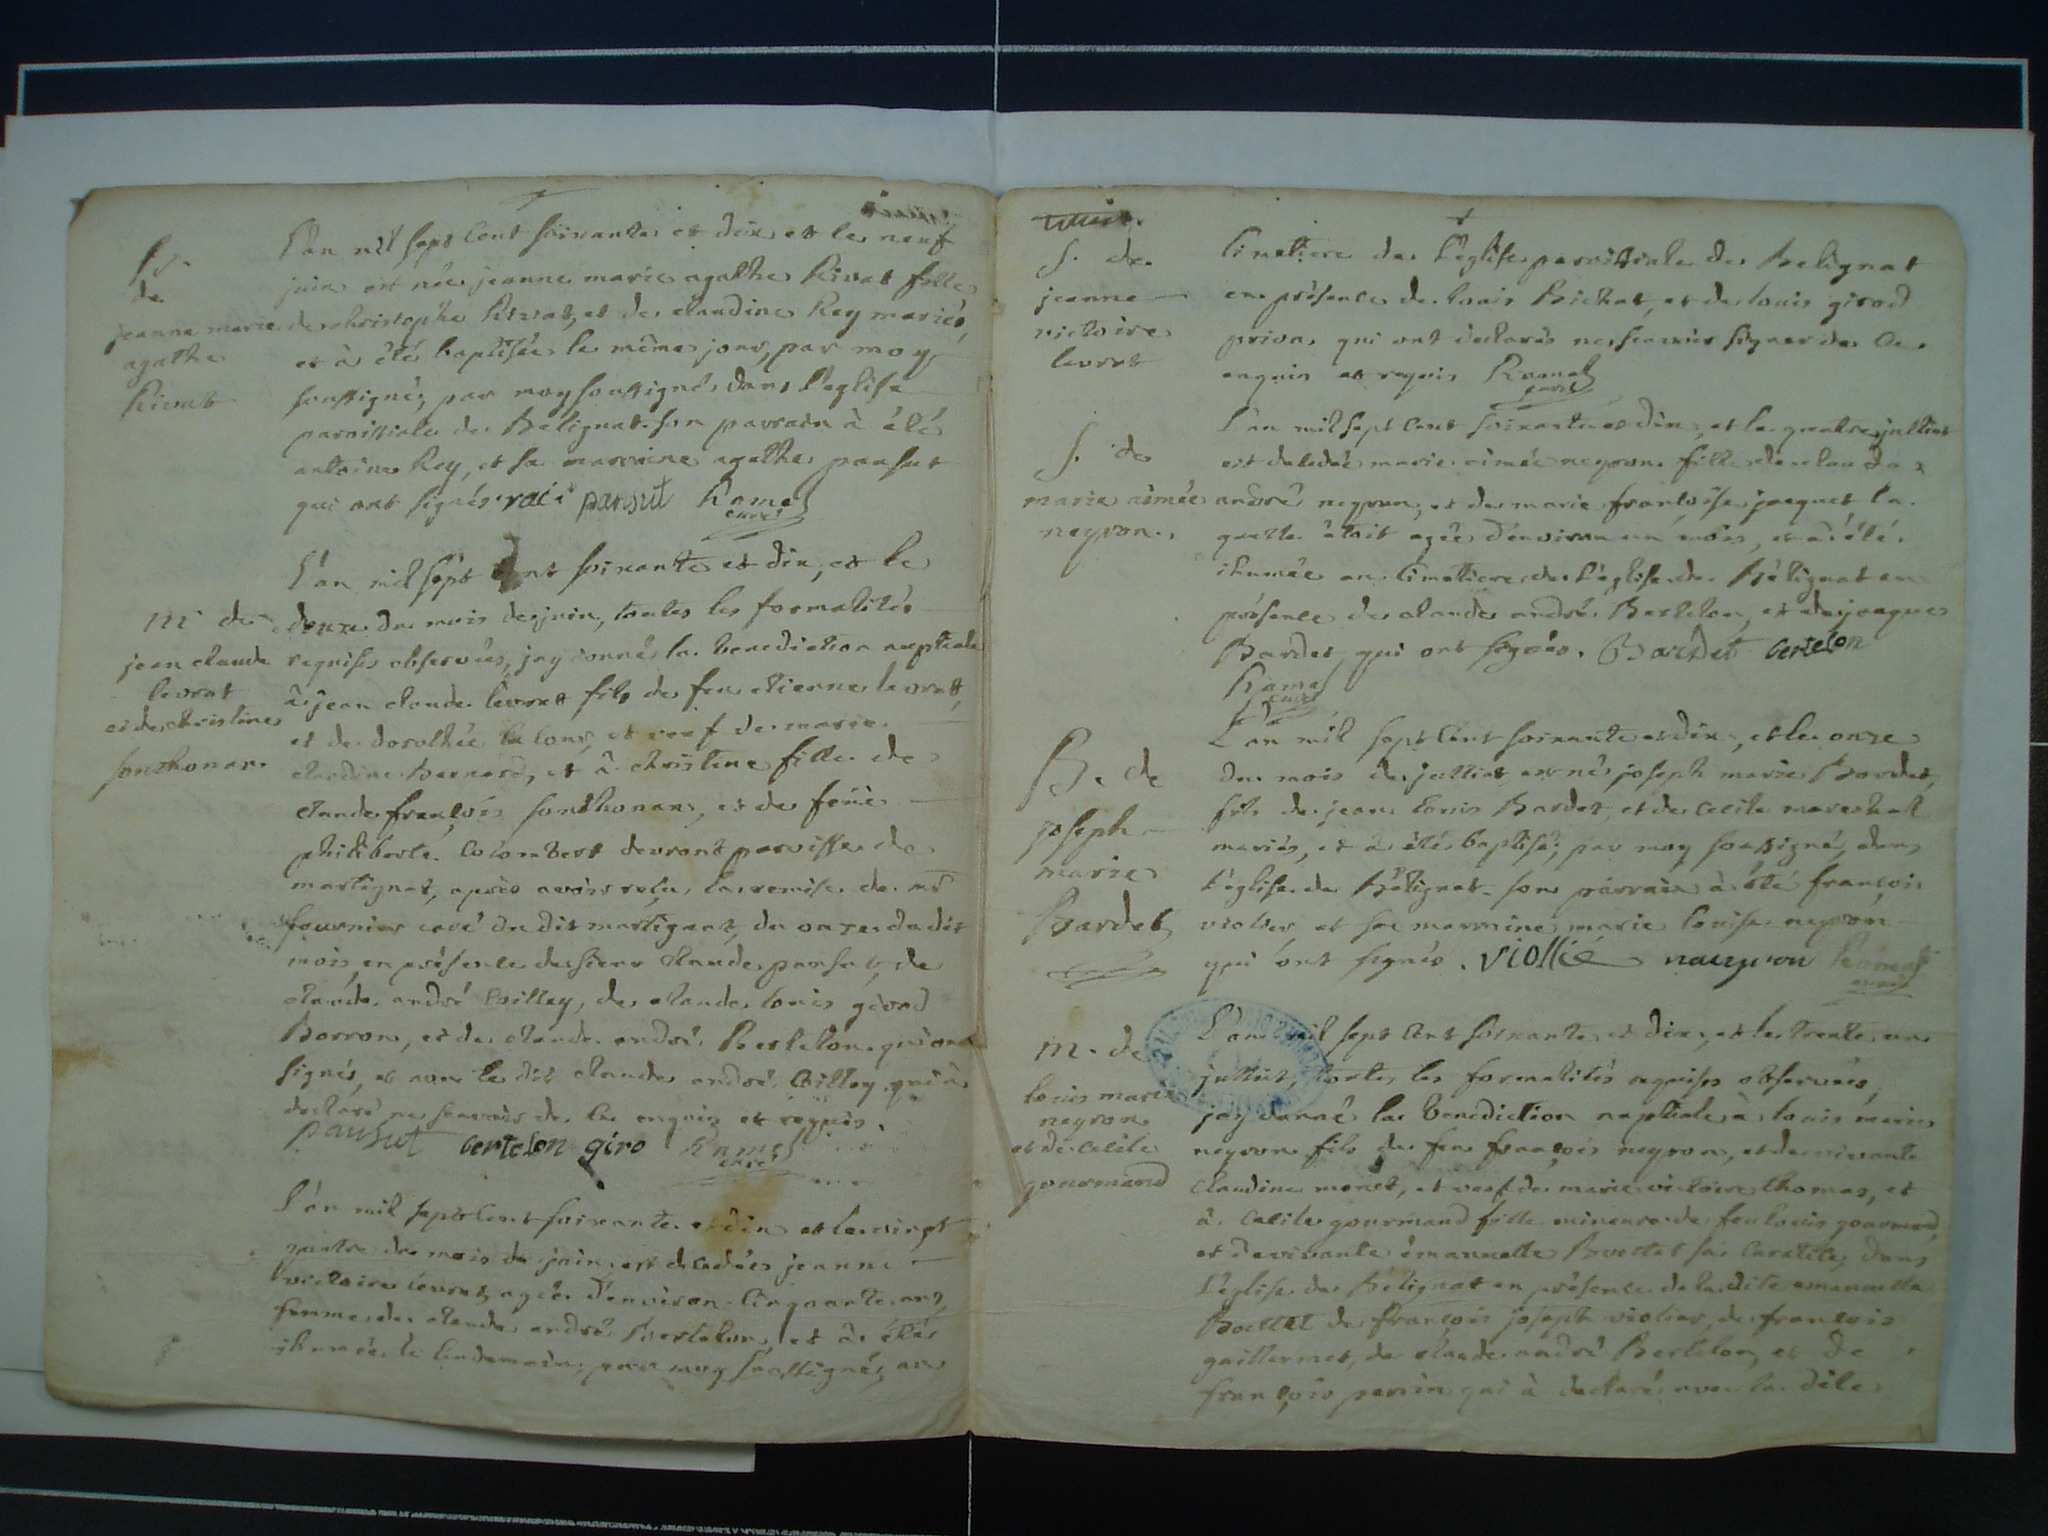 B.
de
jeanne marie
agathe
Rivat
L'an mil sept cent soixante et dix et le neuf
juin est née jeanne marie agathe Rivat fille
de christophe Rivat, et de claudine Rey mariés,
et à été baptisée le même jour, par moy
soussigné, par moy soussigné dans l'eglise
paroissiale de Bélignat. son parrain à été
antoine Rey, et sa marraine agathe pansut
qui ont signés. pansut Ramel
curé
m de
jean claude
levrat
et de christine
sonthonax.
L'an mil sept cent soixante et dix, et le
douze du mois de juin, toutes les formalités
requises observées, jay donné la benediction nuptiale
à jean claude levrat fils de feu etienne levrat,
et de dorothée, et veuf de marie
claudine Bernard, et à christine fille de
claude françois sonthonax, et de feüe
philiberte Colombert de paroisse de
martignat, après avoir reçu la remise de mr
fournier curé du dit martignat, du onze du dit
mois, en présence de sieur claude pansut, de
claude andré Coilley, de claude louis girod
Borron, et de claude andré Bertelon qui ont
signés, et non le dit claude andré Coilley qui à
declaré ne scavoir de ce enquis et requis.
pansut bertelon giro Ramel
curé
L'an mil sept cent soixante et dix et le vingt
quatre du mois de juin est decedée jeanne
victoire levrat, agée d'environ cinquante ans,
femme de claude andré Bertelon, et à été
ihumée le lendemain, par moy soussigné, au
S. de
jeanne
victoire
levrat
cimetiere de l'eglise paroissiale de Belignat
en présence de louis Bichat, et de louis girod
priou, qui ont declarés ne scavoir signer de ce
enquis et requis Ramel
curé
S. de
marie aimée
neyron.
L'an mil sept cent soixante et dix, et le quatre julliet
est decedée marie aimée neyron fille de claude
andré neyron, et de marie françoise jacquet, la
quelle étoit agée d'environ un mois, et à été
ihumée au cimetiere de l'église de Bélignat en
présence de claude andré Bertelon, et de jacques
Bardet, qui ont signés. Bardet bertelon
Ramel
curé
B. de
joseph
marie
Bardet
L'an mil sept cent soixante et dix, et le onze
du mois de julliet est né joseph marie Bardet,
fils de jean louis Bardet, et de cecile mareschal
mariés, et à été baptisé, par moy soussigné, dans
l'église de Bélignat. son parrain à été françois
violier, et sa marraine marie louise neyron
qui ont signés. Viollié naeyron Ramel
curé
m. de
louis marie
neyron
et de cecile
gourmand
L'an mil sept cent soixante et dix, et le trente un
julliet, toutes les formalités requises observées,
jay donné la benediction nuptiale à louis marie
neyron fils de feu françois neyron, et de vivante
claudine moret, et veuf de marie victoire thomas, et
à cecile gourmand fille mineure de feu louis gourmand,
et de vivante émanuelle Bostet sa curatrice, dans
l'église de Bélignat en présence de la dite emanuelle
Bostet de françois joseph violier, de françois
guillermet, de claude andré Bertelon, et de
françois perrin qui à declaré avec la dite